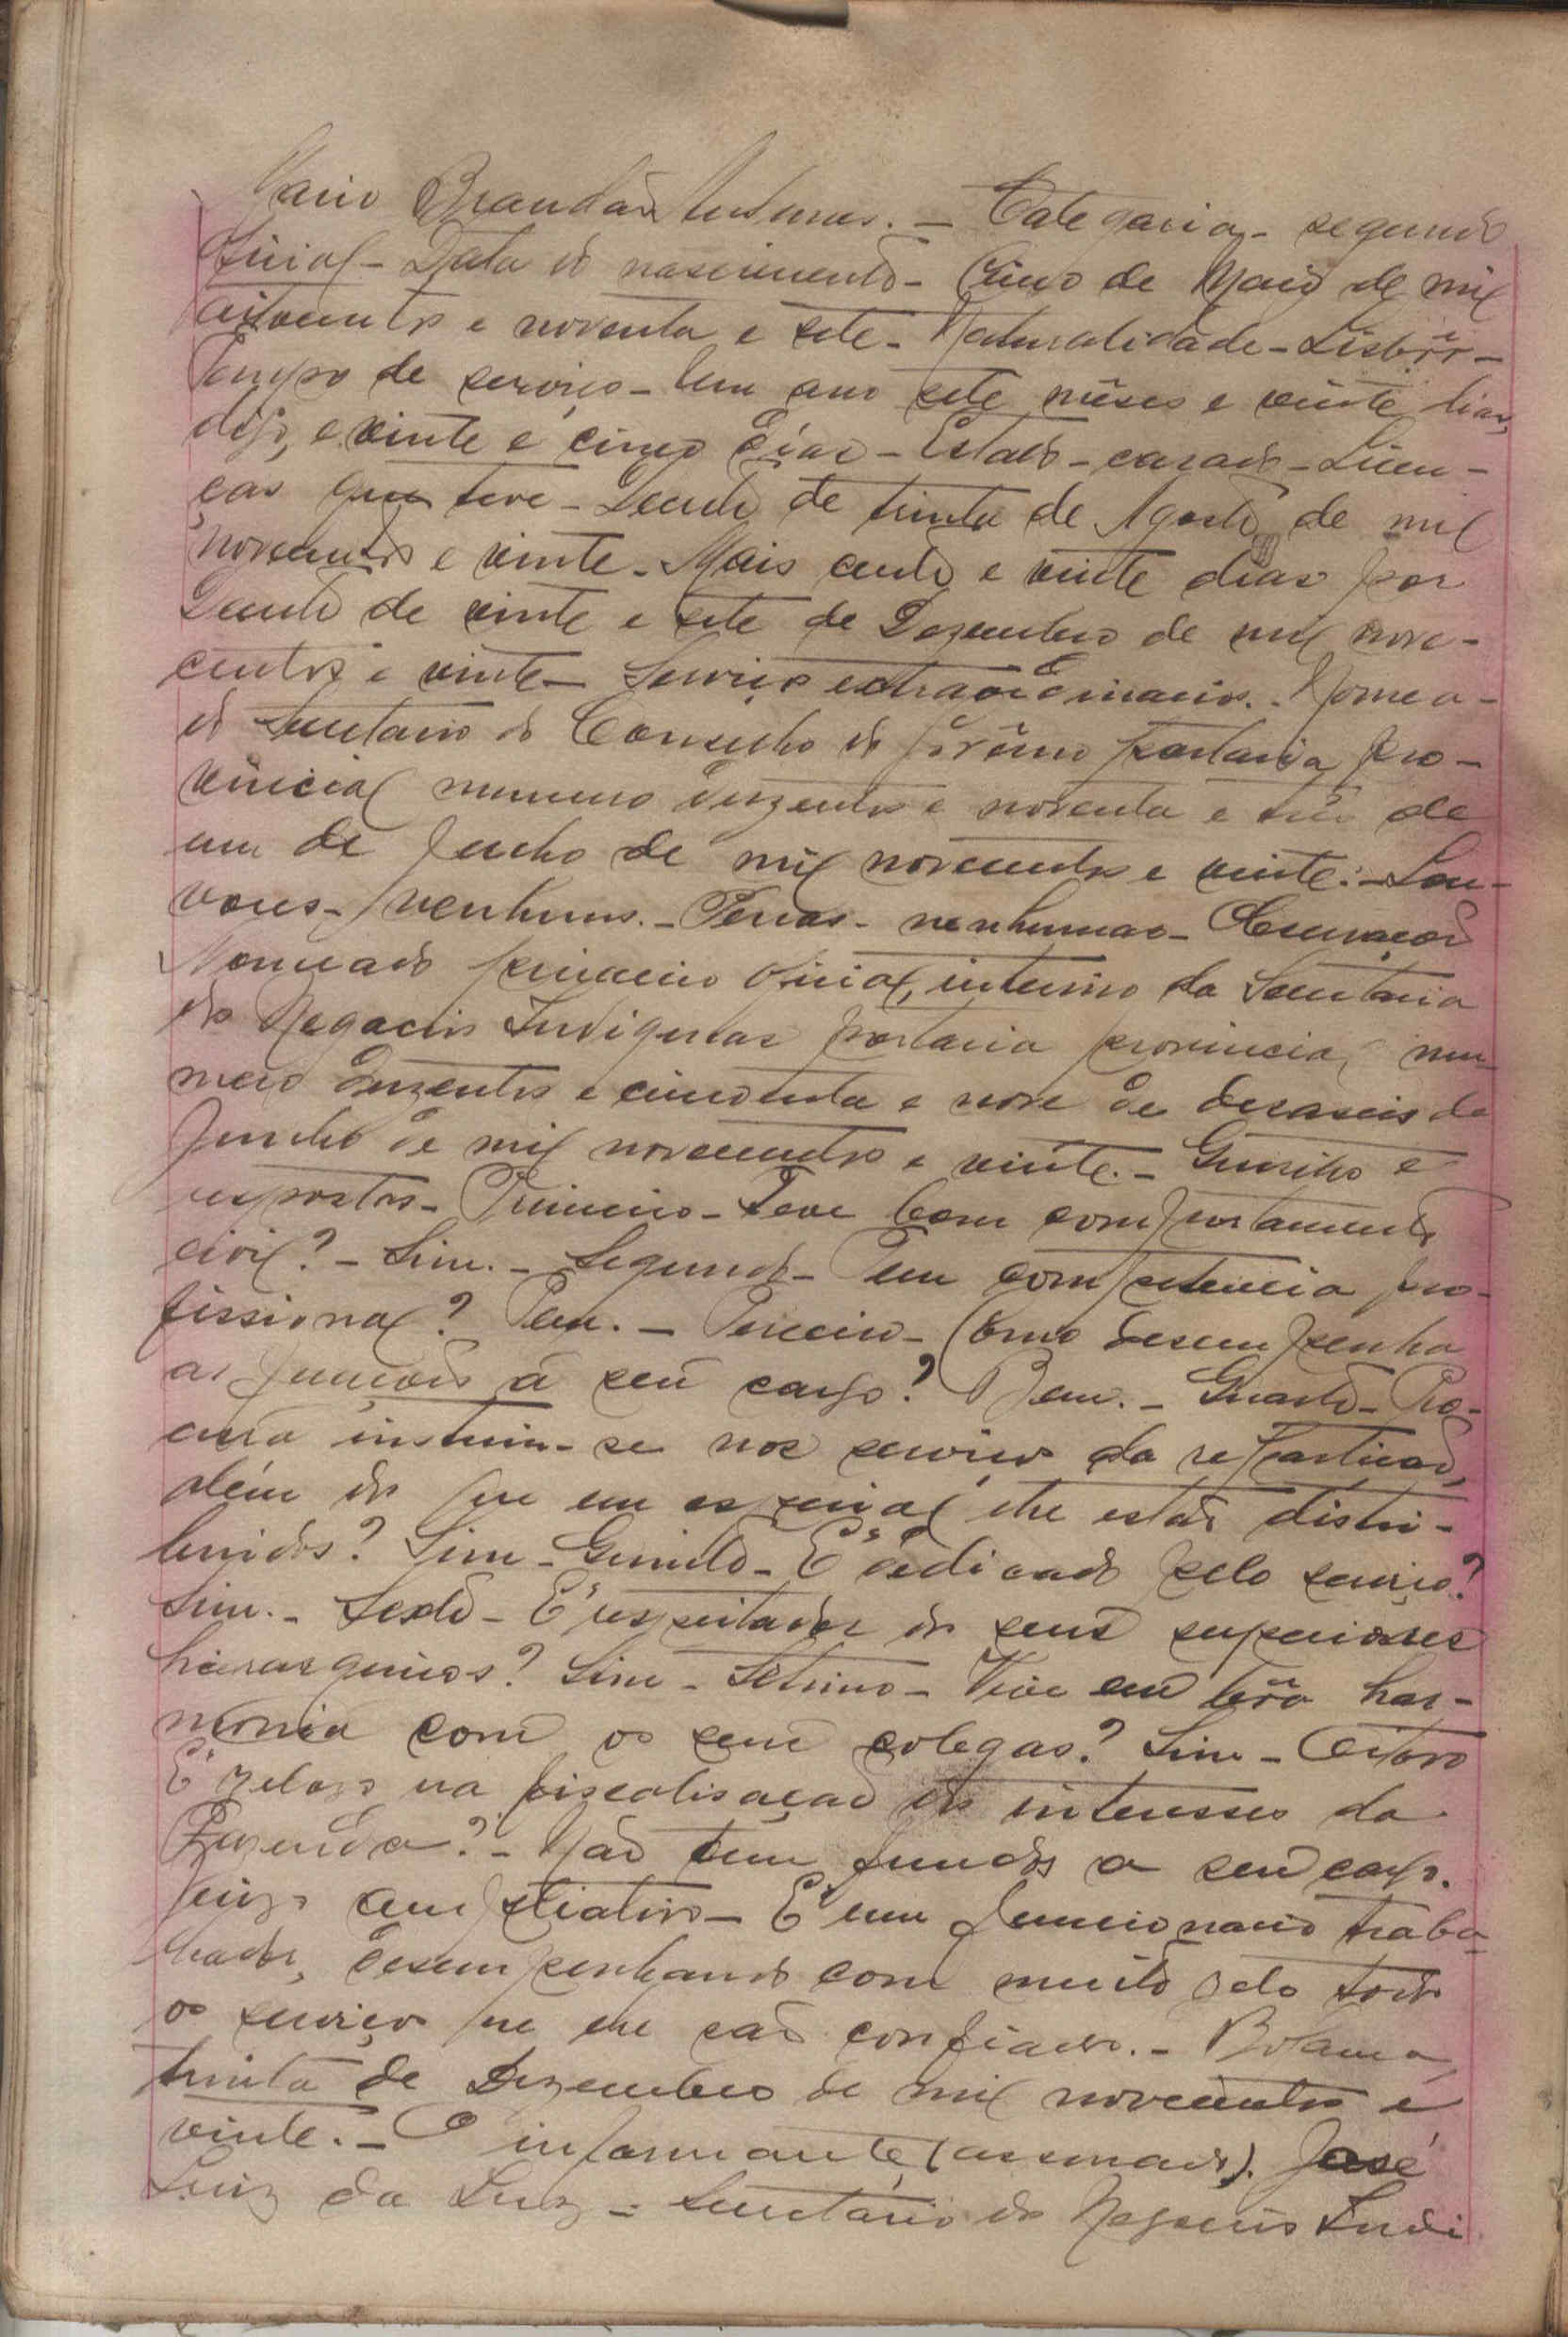 Mario Brandão Antunes. — Categoria - segundo
oficial - Data do nascimento - Cinco de Maio de mil
oitocentos e noventa e sete - Naturalidade - Lisbôa -
Tempo de serviço - Um ano sete mêses e vinte dias,
digo, e vinte e cinco dias - Estado - casado - Licen-
ças que teve - Desde de trinta de Agosto de mil
novecentos e vinte - Mais cento e vinte dias por
de vinte e sete de Dezembro de mil nove-
centos e vinte - Serviços extraordinarios. - Nomea-
do Secretario do Conselho do portaria pro-
vincial numero duzentos e noventa e três de
um de Junho de mil novecentos e vinte. - Lou-
vores - nenhuns. - Penas - nenhumas - Observações
Nomeado primeiro oficial, interino da Secretaria
dos Negocios Indigenas portaria provincial nu-
mero duzentos e cincoenta e nove de dezaseis de
Junho de mil novecentos e vinte. - Quesitos e
respostas - Primeiro - Teve bom comportamento
civil? - Sim. - Segundo - Tem competencia pro-
fissional? Tem. - Terceiro - Como desempenha
as funções a seu cargo? Bem. - Quarto - Pro-
cura instruir-se nos serviços da repartição,
além dos que em especial lhe estão distri-
buidos? Sim - Quinto - E' dedicado pelo serviço?
Sim. - Sexto - E' respeitador dos seus superiores
hierarquicos? Sim - Setimo - Vive em bôa har-
monia com os seus colegas? Sim - Oitavo
E' zeloso na fiscalisação dos interesses da
Fazenda? - Não tem fundos a seu cargo.
Juizo ampliativo - E' um funcionario traba-
lhador, desempenhando com muito zelo todos
os serviços que lhe são confiados. - Bolama,
trinta de Dezembro de mil novecentos e
vinte. - O informante (assinado). José
Luiz da Luz - Secretário dos Negocios Indi